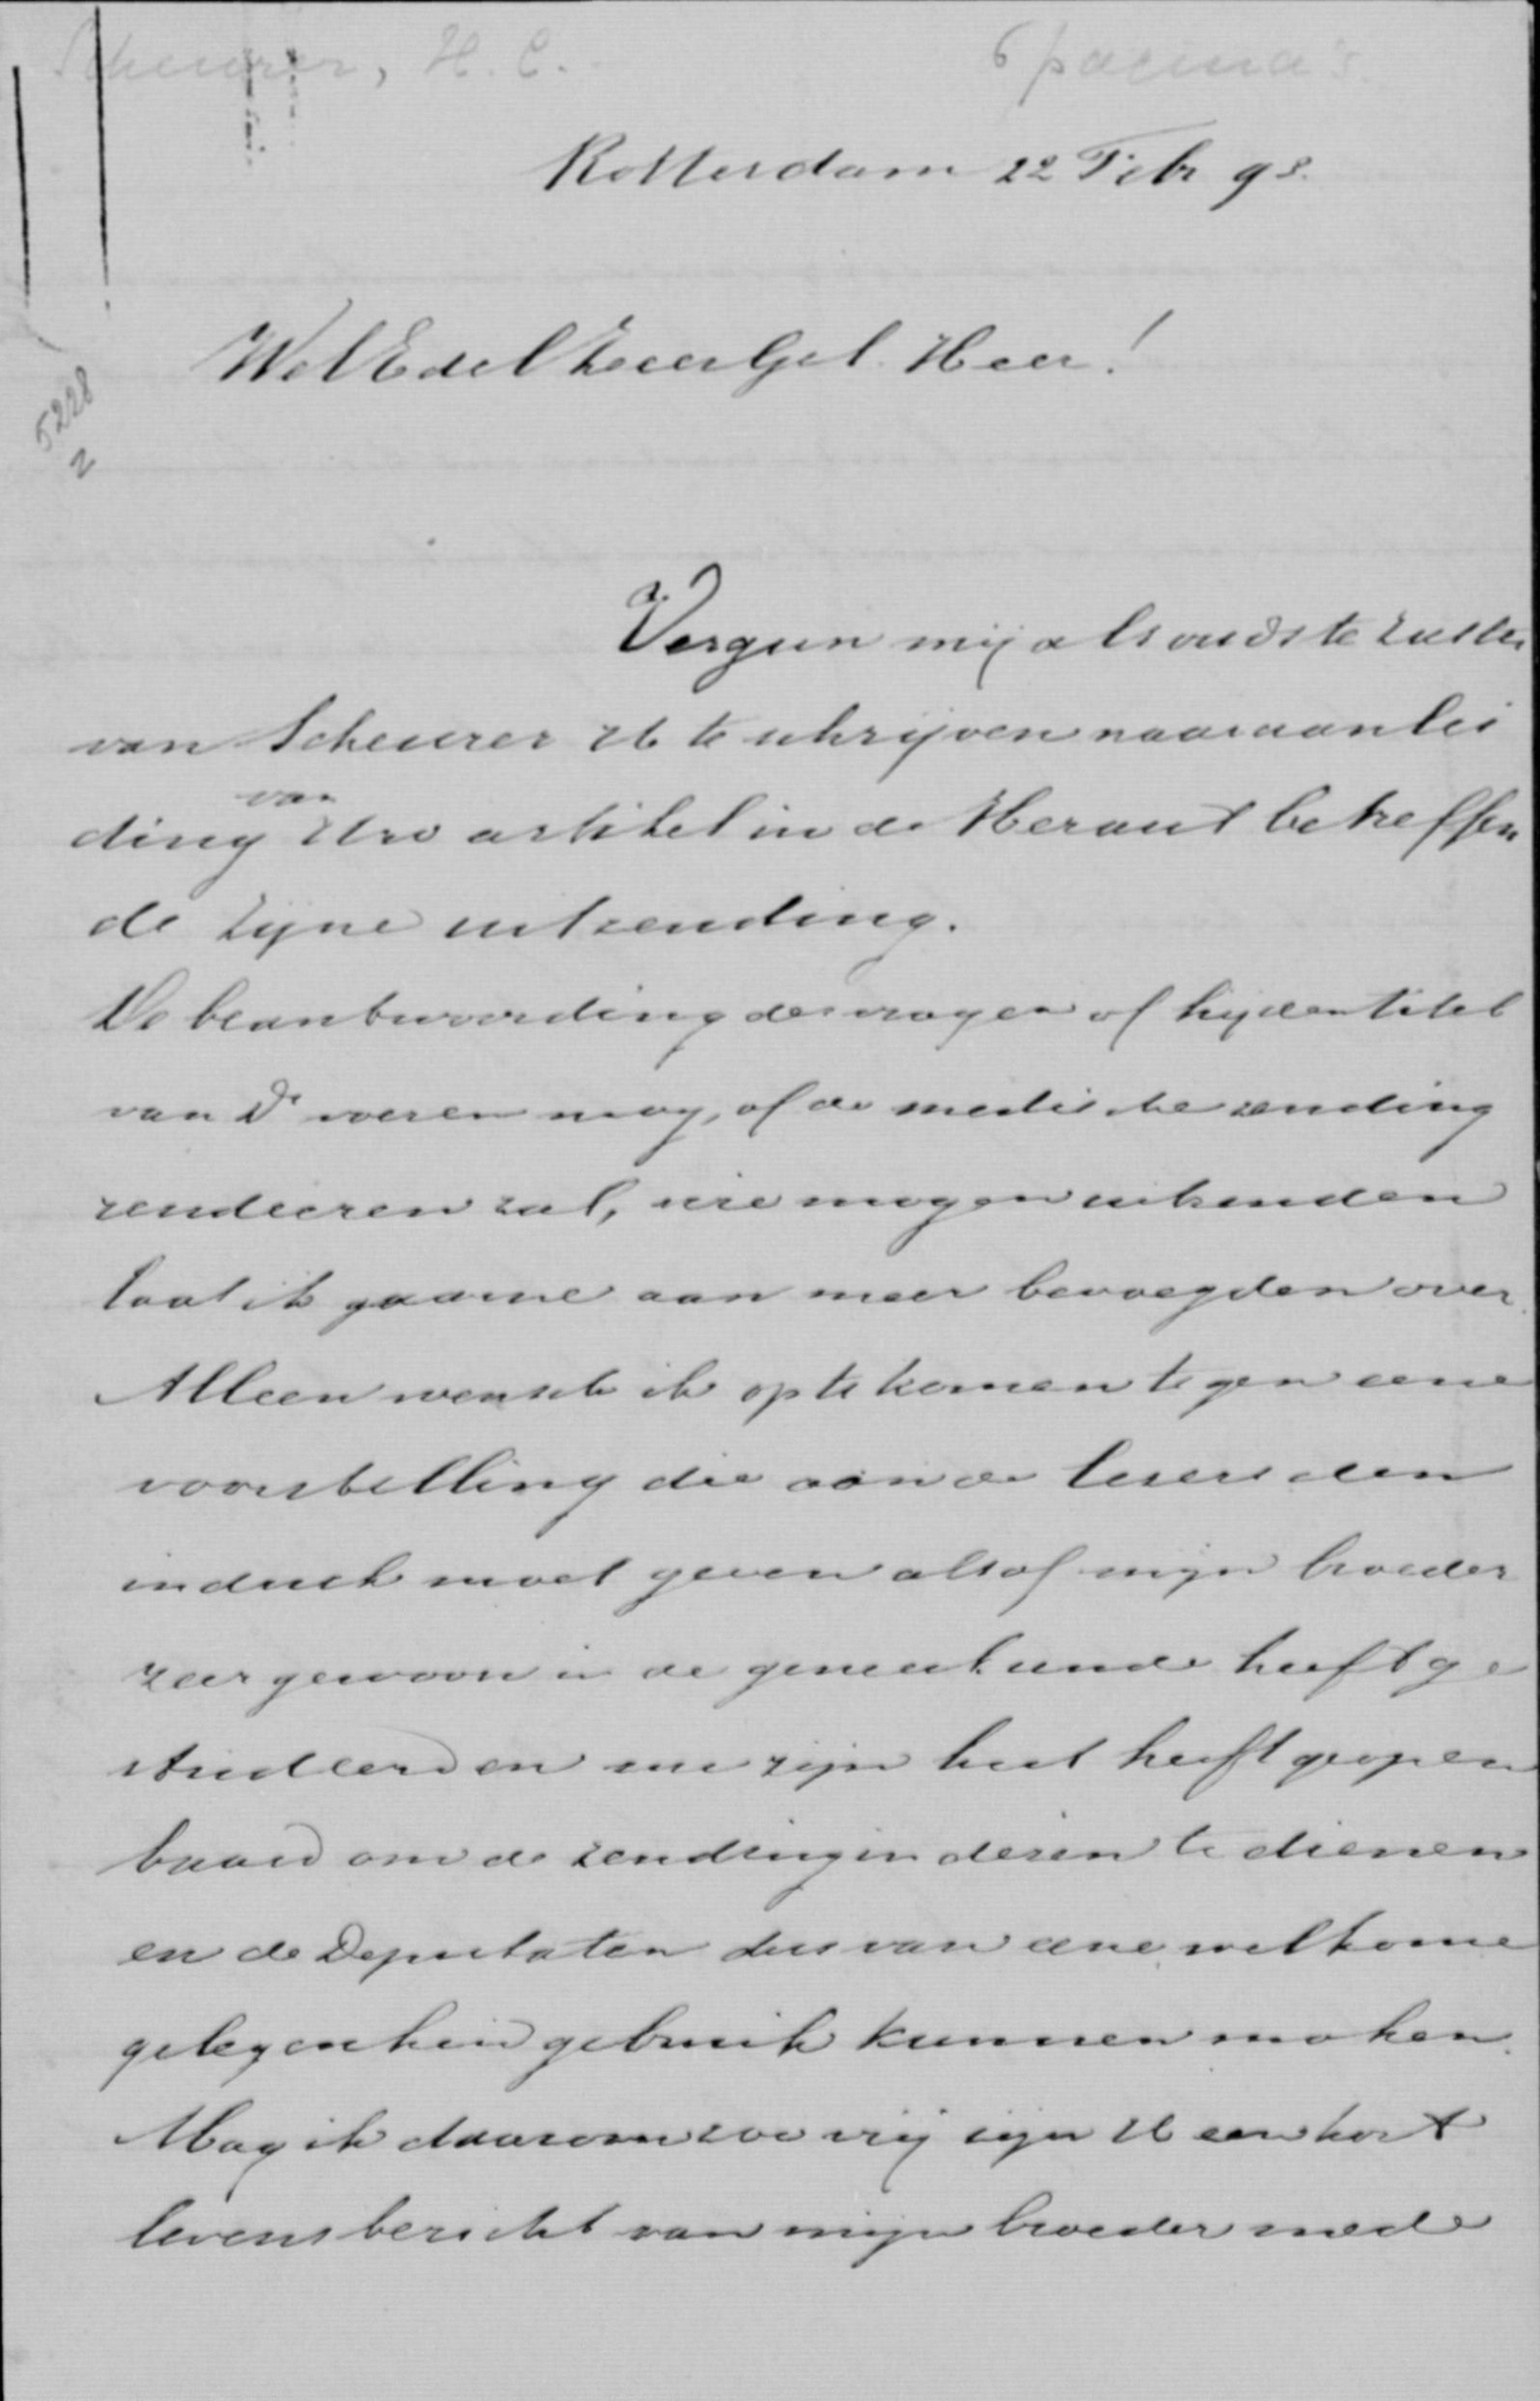 Scheurer, H. C.
6 pagina's.
Rotterdam 22 Febr 93.
5228
2
WelEdelZeerGel. Heer!
a.
Vergun mij als oudste zuster
van Scheurer U te schrijven naar aanlei
ding van Uw artikel in de Heraut betreffen
de zijne uitzending.
De beantwoording der vragen of hij den titel
van Dr voeren mag, of de medische zending
rendeeren zal, wie mogen uitzenden
laat ik gaarne aan meer bevoegden over.
Alleen wensch ik op te komen tegen eene
voorstelling die aan de lezers den
indruk moet geven alsof mijn broeder
zeer gewoon in de geneeskunde heeft ge
studeerd en nu zijn lust heeft geopen
baard om de zending in dezen te dienen
en de Deputaten dus van eene welkome
gelegenheid gebruik kunnen maken.
Mag ik daarom zoo vrij zijn U een kort
levensbericht van mijn broeder mede